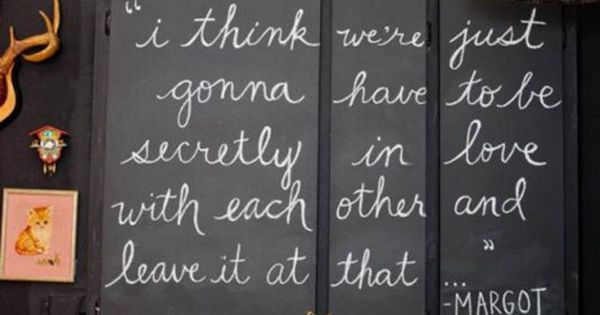 “i think we're just
gonna have to be
secretly in love
with each other and
leave it at that ...”
-MARGOT